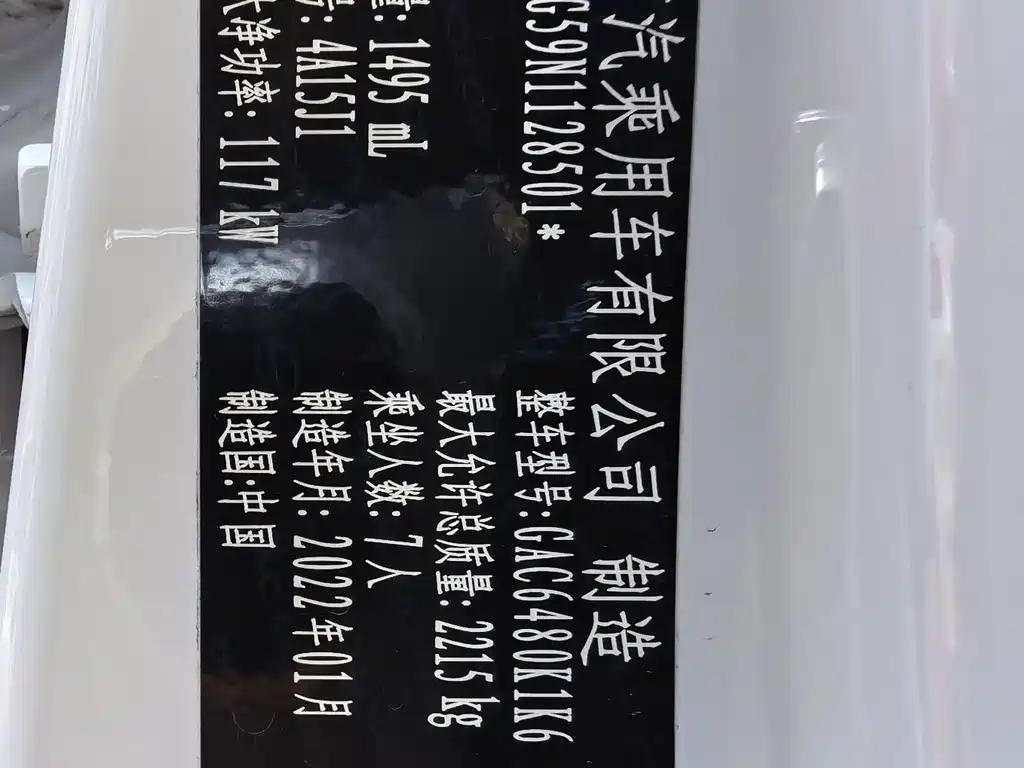 汽乘用车有限公司 制造
G59N1128501*
整车型号:GAC6480K1K6
最大允许总质量:2215 kg
量: 1495 mL
乘坐人数:7人
号: 4A15J1
制造年月:2022年01月
大净功率: 117 kW
制造国:中国